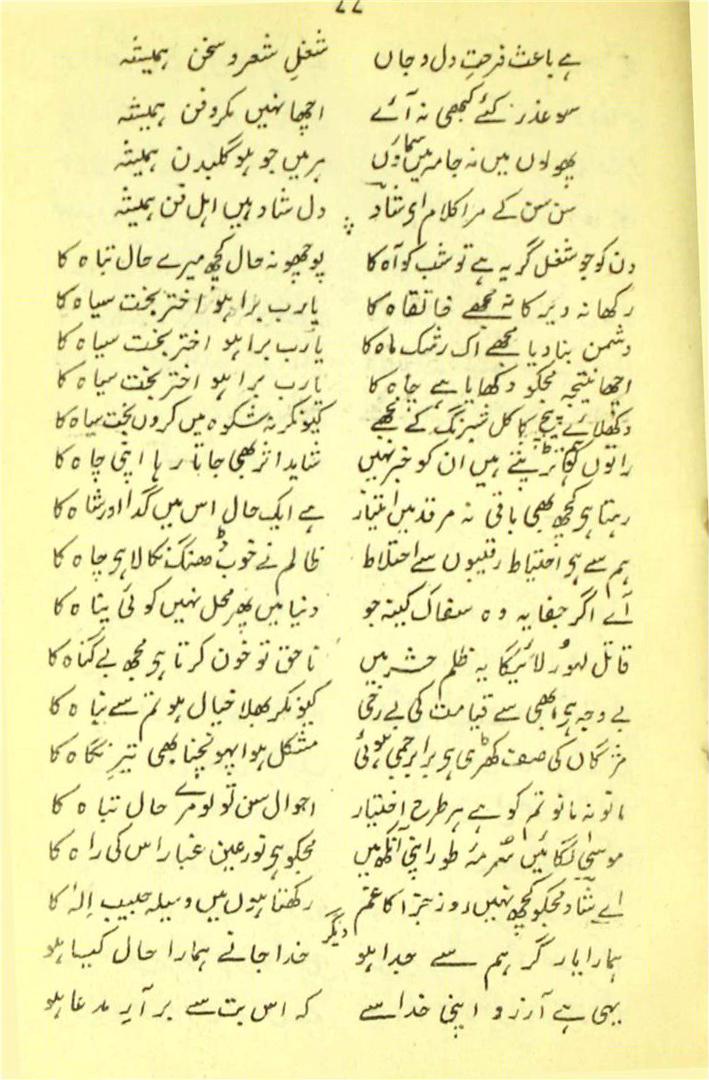 ۷۷
ہے باعث فرحتِ دل و جاں شغلِ شعر و سخن ہمیشہ
سو عذر کئے کبھی نہ آئے اچھا نہیں مکر و فن ہمیشہ
پھولوں میں نہ جامہ میں سماؤں ہر میں جو ہو گلبدن ہمیشہ
سن سن کے مرا کلام ای شاد دل شاد ہیں اہل فن ہمیشہ
دن کو جو شغل گریہ ہے تو شب کو آہ کا پوچھو نہ حال کچھ میرے حال تباہ کا
رکھا نہ دیر کا نہ مجھے خانقاہ کا یارب برا ہو اختر بخت سیاہ کا
دشمن بنا دیا مجھے اک رشک ماہ کا یارب برا ہو اختر بخت سیاہ کا
اچھا نتیجہ مجکو دکھایا ہے چاہ کا یارب برا ہو اختر بخت سیاہ کا
دکھلائے پیچ کاکل شبرنگ کے مجھے کیونکر نہ شکوہ میں کروں بخت سیاہ کا
راتوں کو تڑپتے ہیں ان کو خبر نہیں شاید اثر بھی جاتا رہا اپنی چاہ کا
رہتا ہو کچھ بھی باقی نہ مرقد میں امتیاز ہے ایک حال اس میں گدا اور شاہ کا
ہم سے ہو احتیاط رقیبوں سے اختلاط ظالم نے خوب ڈھنگ نکالا ہو چاہ کا
آے اگر جفا پہ وہ سفاک کینہ جو دنیا میں پھر محل نہیں کوئی پناہ کا
قاتل لہو رلائیگا یہ ظلم حشر میں ناحق تو خون کرتا ہو مجھ بے گناہ کا
بے وجہ ہو ابھی سے قیامت کی بے رخی کیونکر بھلا خیال ہو تم سے نباہ کا
مژگاں کی صف کھڑی ہو برابر جمی ہوئی مشکل ہوا پہونچنا بھی تیرِ نگاہ کا
مانو نہ مانو تم کو ہے ہر طرح اختیار احوال سن تو لو مرے حال تباہ کا
موسیٰ لگائیں سُرمۂ طور اپنی آنکھ میں مجکو ہو نور عین غبار اس کی راہ کا
اے شاد مجکو کچھ نہیں روز جزا کا غم رکھتا ہوں میں وسیلہ حبیب الٰہ کا
دیگر
ہمارا یار گر ہم سے جدا ہو خدا جانے ہمارا حال کیسا ہو
یہی ہے آرزو اپنی خدا سے کہ اس بت سے برآید مدعا ہو